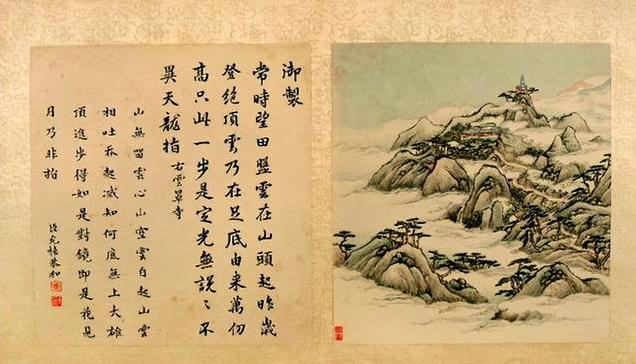 御製
常時望田盤雲在山頭起昨歲
登絕頂雲乃在足底由來萬仞
高只此一步是定光無説〻不
異天龍指 右雲罩寺
山無留雲心山空雲自起山雲
相吐吞起滅知何底無上大雄
頂進步得如是對鏡即是花見
月乃非指 臣允禧恭和